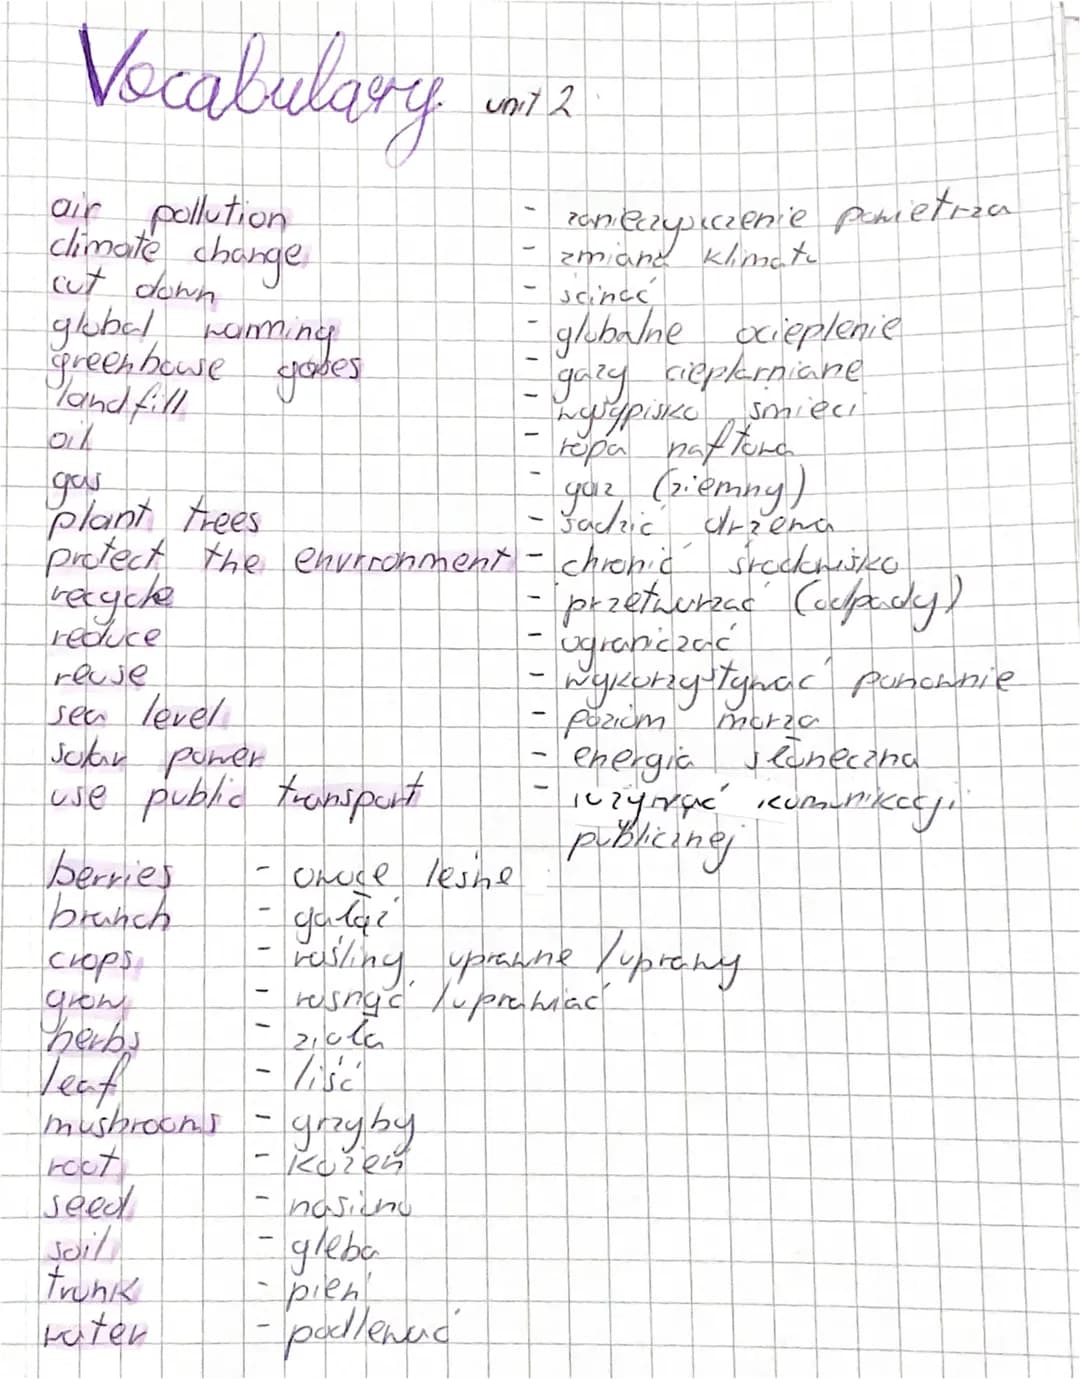 Vocabulary unit 2
air pollution - zanieczyszczenie powietrza
climate change - zmiana klimatu
cut down - ścinać
global warming - globalne ocieplenie
greenhouse gases - gazy cieplarniane
landfill - wysypisko śmieci
oil - ropa naftowa
gas - gaz (ziemny)
plant trees - sadzić drzewa
protect the environment - chronić środowisko
recycle - przetwarzać (odpady)
reduce - ograniczać
reuse - wykorzystywać ponownie
sea level - poziom morza
solar power - energia słoneczna
use public transport - używać komunikacji
publicznej
berries - owoce leśne
branch - gałąź
crops - rośliny uprawne / uprawy
grow - rosnąć / uprawiać
herbs - zioła
leaf - liść
mushrooms - grzyby
root - kożeń
seed - nasiono
soil - gleba
trunk - pień
water - podlewać